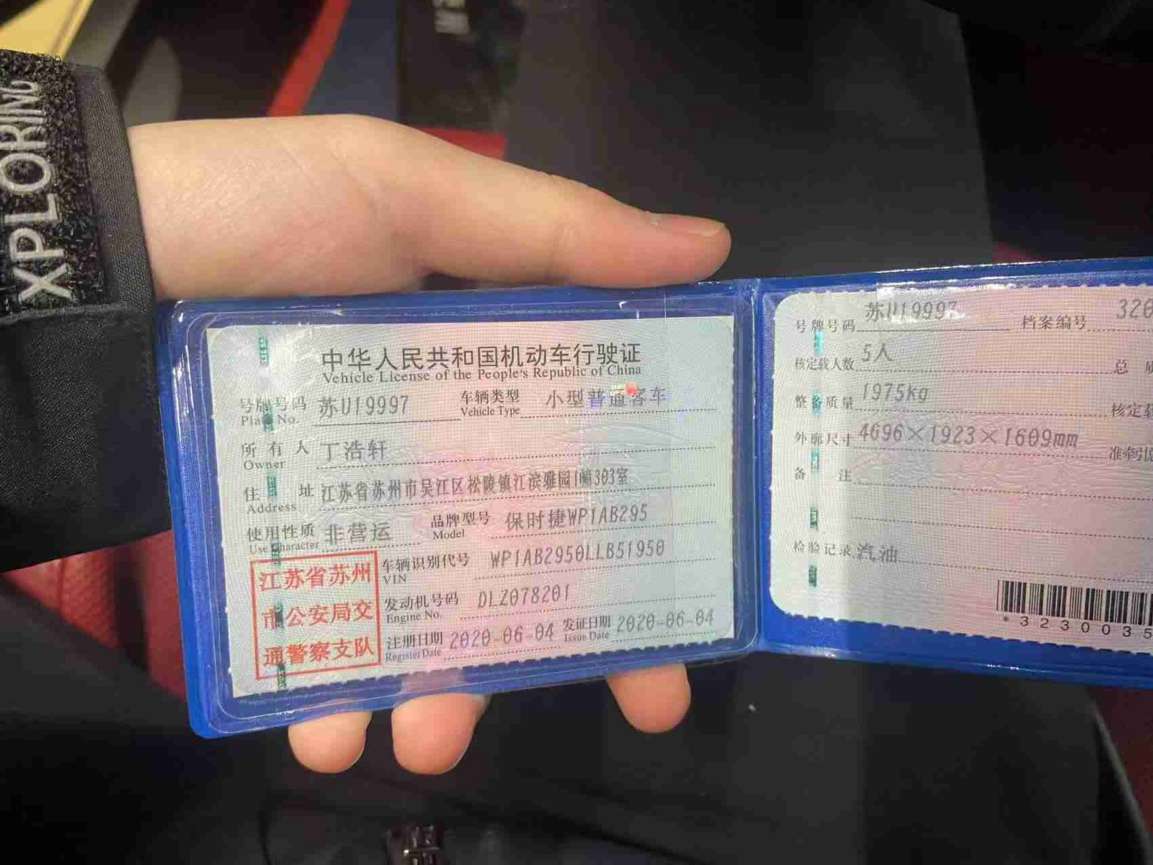 XPLORING
中华人民共和国机动车行驶证
Vehicle License of the People's Republic of China
号牌号码 苏U19997 车辆类型 小型普通客车
Plate No. Vehicle Type
所有人 丁浩轩
Owner
住址 江苏省苏州市吴江区松陵镇江滨雅园1幢303室
Address
使用性质 非营运 品牌型号 保时捷WP1AB295
Use Character Model
江苏省苏州
市公安局交
通警察支队
车辆识别代号 WP1AB2950LLB51950
VIN
发动机号码 DLZ078201
Engine No.
注册日期 2020-06-04 发证日期 2020-06-04
Register Date Issue Date
号牌号码 苏U19997 档案编号 320
核定载人数 5人 总质
整备质量 1975kg 核定载
外廓尺寸 4696×1923×1609mm 准牵引
备注
检验记录 汽油
*3230035